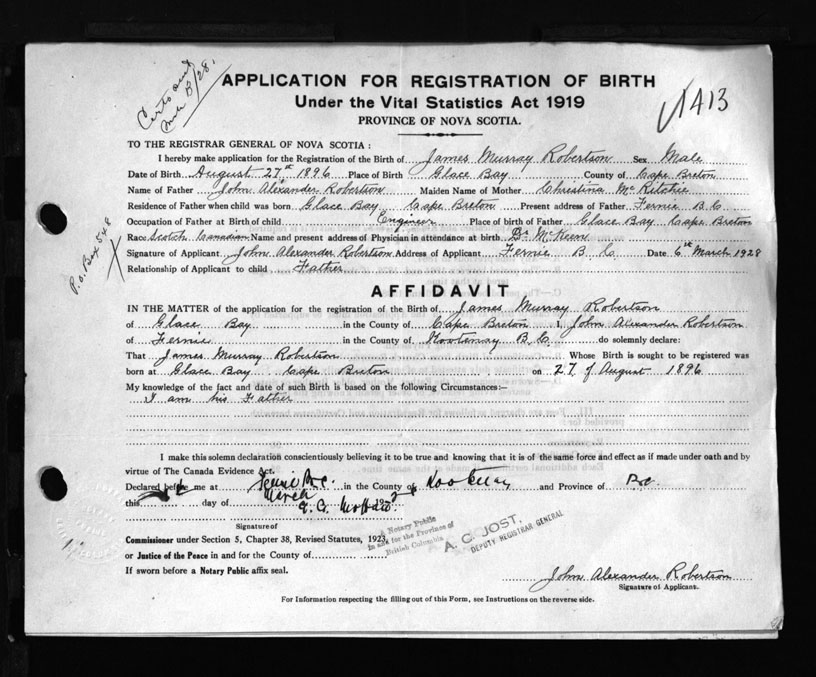 Certs and
B/28.
APPLICATION FOR REGISTRATION OF BIRTH
1413
Under the Vital Statistics Act 1919
PROVINCE OF NOVA SCOTIA.
TO THE REGISTRAR GENERAL OF NOVA SCOTIA :
I hereby make application for the Registration of the Birth of James Murray Robertson Sex Male
Date of Birth August 27st 1896 Place of Birth Glace Bay County of Cape Breton
Name of Father John Alexander Robertson Maiden Name of Mother Christina McRitchie
Residence of Father when child was born Glace Bay Cape Breton Present address of Father Fernie B.C.
Occupation of Father at Birth of child Engineer Place of birth of Father Glace Bay Cape Breton
Race Scotch Canadian Name and present address of Physician in attendance at birth Dr McKeen
Signature of Applicant John Alexander Robertson Address of Applicant Fernie B C Date 6th March 1928
Relationship of Applicant to child Father
P.O. Box 548
AFFIDAVIT
IN THE MATTER of the application for the registration of the Birth of James Murray Robertson
of Glace Bay in the County of Cape Breton I, John Alexander Robertson
of Fernie in the County of Kootenay B.C. do solemnly declare:
That James Murray Robertson Whose Birth is sought to be registered was
born at Glace Bay Cape Breton on 27 of August 1896
My knowledge of the fact and date of such Birth is based on the following Circumstances:
I am his Father
I make this solemn declaration conscientiously believing it to be true and knowing that it is of the same force and effect as if made under oath and by
virtue of The Canada Evidence Act.
Declared before me at Fernie B.C. in the County of Kootenay and Province of B.C.
this day of March 192
Signature of
Commissioner under Section 5, Chapter 38, Revised Statutes, 1923,
or Justice of the Peace in and for the County of
If sworn before a Notary Public affix seal.
A Notary Public
in and for the Province of
British Columbia
A. C. JOST,
DEPUTY REGISTRAR GENERAL
John Alexander Robertson
Signature of Applicant.
For Information respecting the filling out of this Form, see Instructions on the reverse side.